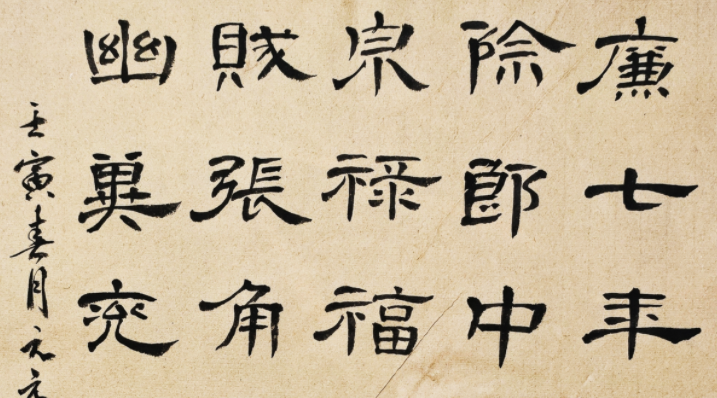 廉七年
除郎中
泉禄福
賊張角
幽冀兖
壬寅春月